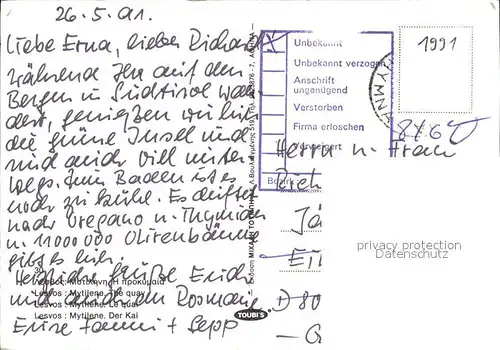 26.5.91.
Liebe Erna, lieber Richard
während Ihr auf den
Bergen in Südtirol wan
dert, genießen wir hier
die grüne Insel und
sind auch viel unter
wegs. Zum Baden ist es
noch zu kühl. Es duftet
nach Oregano u. Thymian
u. 11000000 Olivenbäume
gibt es hier.
Herzliche Grüße Erich
und auch von Rosmarie
Eure Fanni + Sepp
Λέσβος: Μυτιλήνη. Η προκυμαία
Lesvos: Mytilene. The quay
Lesvos: Mytilène. Le quai
Lesvos: Mytilene. Der Kai
TOUBI'S
Unbekannt
Unbekannt verzogen
Anschrift
ungenügend
Verstorben
Firma erloschen
Verweigert
1991
Herrn u. Frau
Rich
D 80
privacy protection
Datenschutz